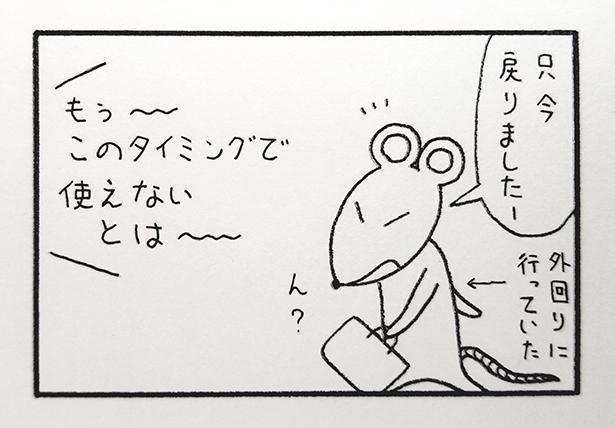 只今
戻りましたー
外回りに
行っていた
もぅ～～
このタイミングで
使えない
とは～～
ん？